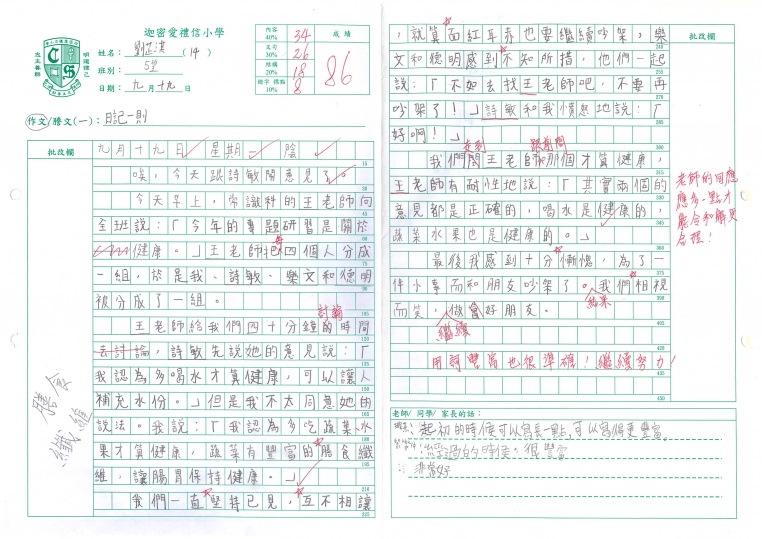 迦密愛禮信小學
姓名：劉芷淇（14）
班別：
日期：九月十九日
內容 40% 34
文句 30% 26
結構 20% 18
錯字 標點 10% 8
成績
86
作文/謄文(一)：日記一則
批改欄
九月十九日 星期一 陰
唉，今天跟詩敏鬧意見了。
今天早上，常識科的王老師向
全班說：「今年的專題研習是關於
健康。」王老師把四個人分成
一組，於是我、詩敏、樂文和德明
被分成了一組。
討論
王老師給我們四十分鐘的時間
去討論，詩敏先說她的意見說：「
我認為多喝水才算健康，可以讓人
補充水份。」但是我不太同意她的
說法。我說：「我認為多吃蔬菜、水
果才算健康，蔬菜有豐富的膳食纖
維，讓腸胃保持健康。」
我們一直堅持己見，互不相讓
膳食
纖維
批改欄
，就算面紅耳赤也要繼續吵架，樂
文和德明感到不知所措，他們一起
說：「不如去找王老師吧，不要再
吵架了！」詩敏和我憤怒地說：「
好啊！」
走到 跟前問
我們問王老師和那個才算健康，
王老師有耐性地說：「其實兩個的
意見都是正確的，喝水是健康的，
蔬菜水果也是健康的。」
最後我感到十分慚愧，為了一
件小事而和朋友吵架了。我們相視
結果
而笑，做會好朋友。
繼續
老師的回應
應多一點才
能令和解更
合理！
用詞豐富也很準確！繼續努力！
老師/ 同學/ 家長的話：
起初的時候可以寫長一點，可以寫得更豐富。
經過的時候，很豐富
非常好